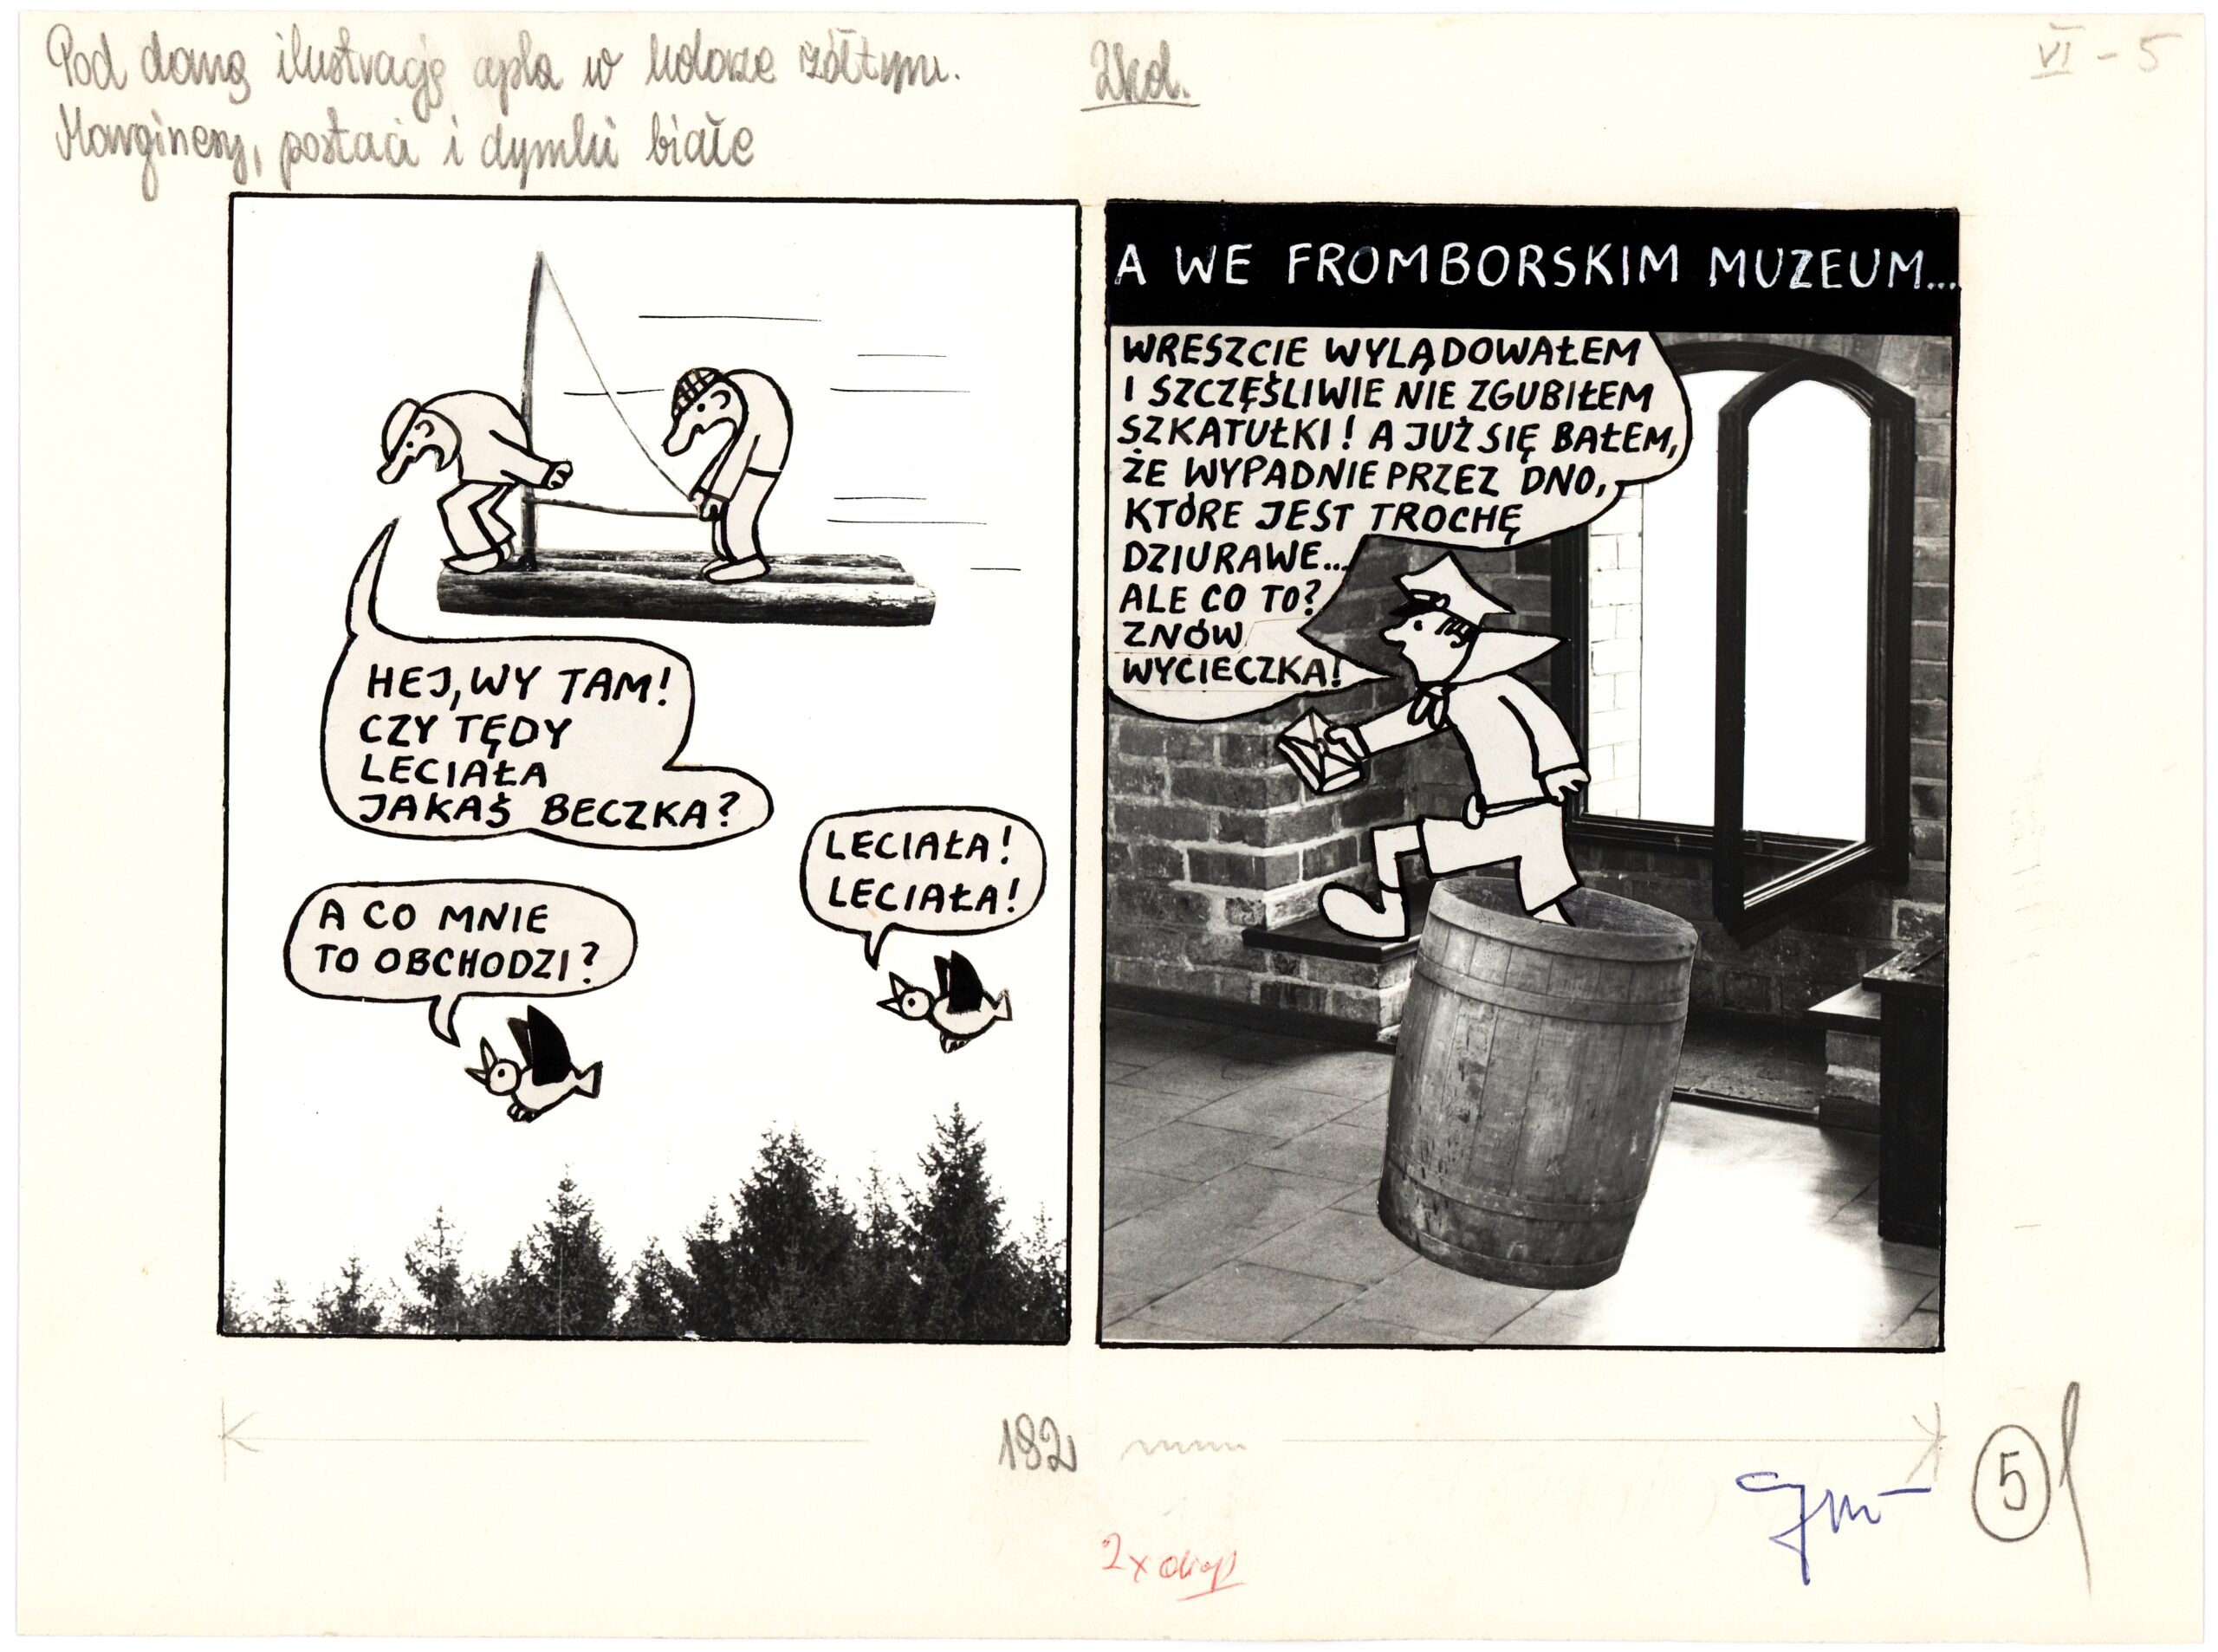 Pod daną ilustrację apla w kolorze żółtym.
Marginesy, postaci i dymki białe
2kol.
VI - 5
HEJ, WY TAM!
CZY TĘDY
LECIAŁA
JAKAŚ BECZKA?
LECIAŁA!
LECIAŁA!
A CO MNIE
TO OBCHODZI?
A WE FROMBORSKIM MUZEUM...
WRESZCIE WYLĄDOWAŁEM
I SZCZĘŚLIWIE NIE ZGUBIŁEM
SZKATUŁKI! A JUŻ SIĘ BAŁEM,
ŻE WYPADNIE PRZEZ DNO,
KTÓRE JEST TROCHĘ
DZIURAWE...
ALE CO TO?
ZNÓW
WYCIECZKA!
192
5
2x